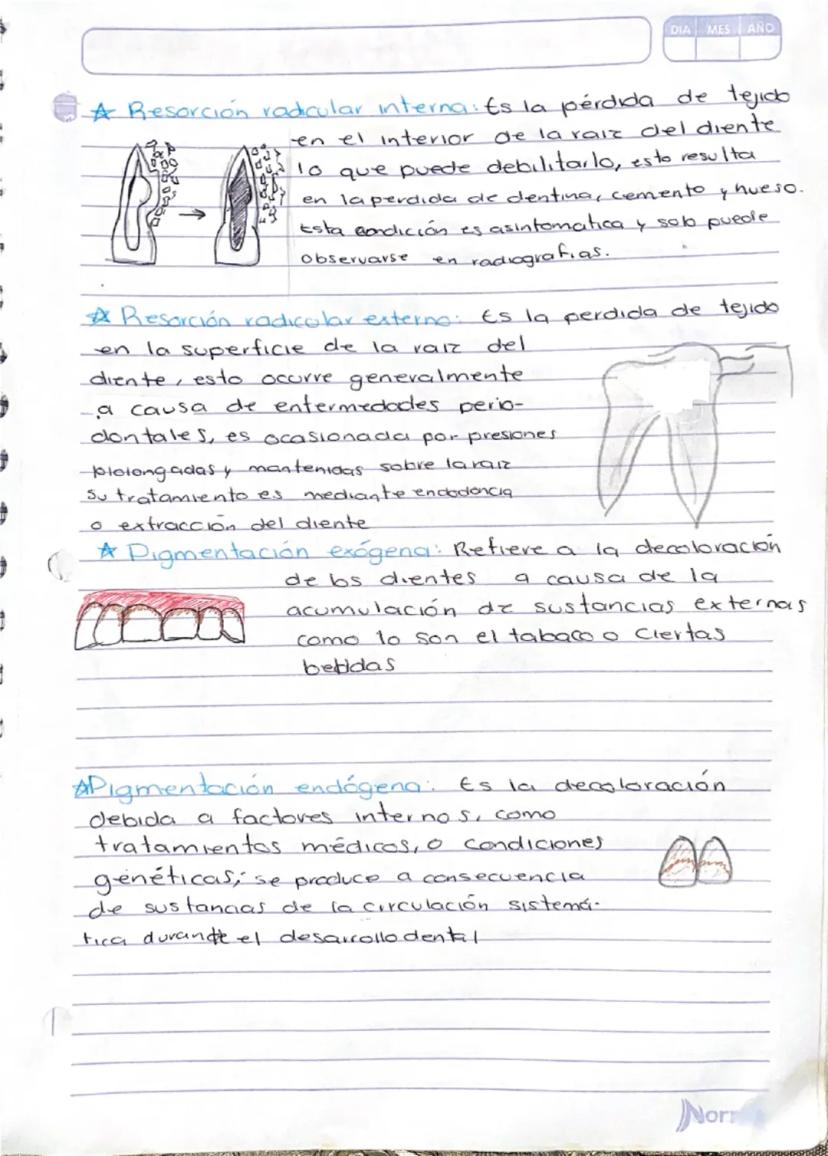 DIA MES AÑO
☆ Resorción radicular interna: Es la pérdida de tejido
en el interior de la raiz del diente
lo que puede debilitarlo, esto resulta
en la perdida de dentina, cemento y hueso.
Esta condición es asintomatica y solo puede
observarse en radiografias.
☆ Resorción radicolar externa: Es la perdida de tejido
en la superficie de la raiz del
diente, esto ocurre generalmente
a causa de enfermedades perio-
dontales, es ocasionada por presiones
prolongadas y mantenidas sobre la raiz
su tratamiento es mediante endodoncia
o extracción del diente
☆ Pigmentación exógena: Refiere a la decoloración
de los dientes a causa de la
acumulación de sustancias externas
como lo son el tabaco o ciertas
bebidas
☆Pigmentación endógena: Es la decoloración
debida a factores internos, como
tratamientos médicos, o condiciones
genéticas; se produce a consecuencia
de sustancias de la circulación sistemá-
tica durante el desarrollo dental